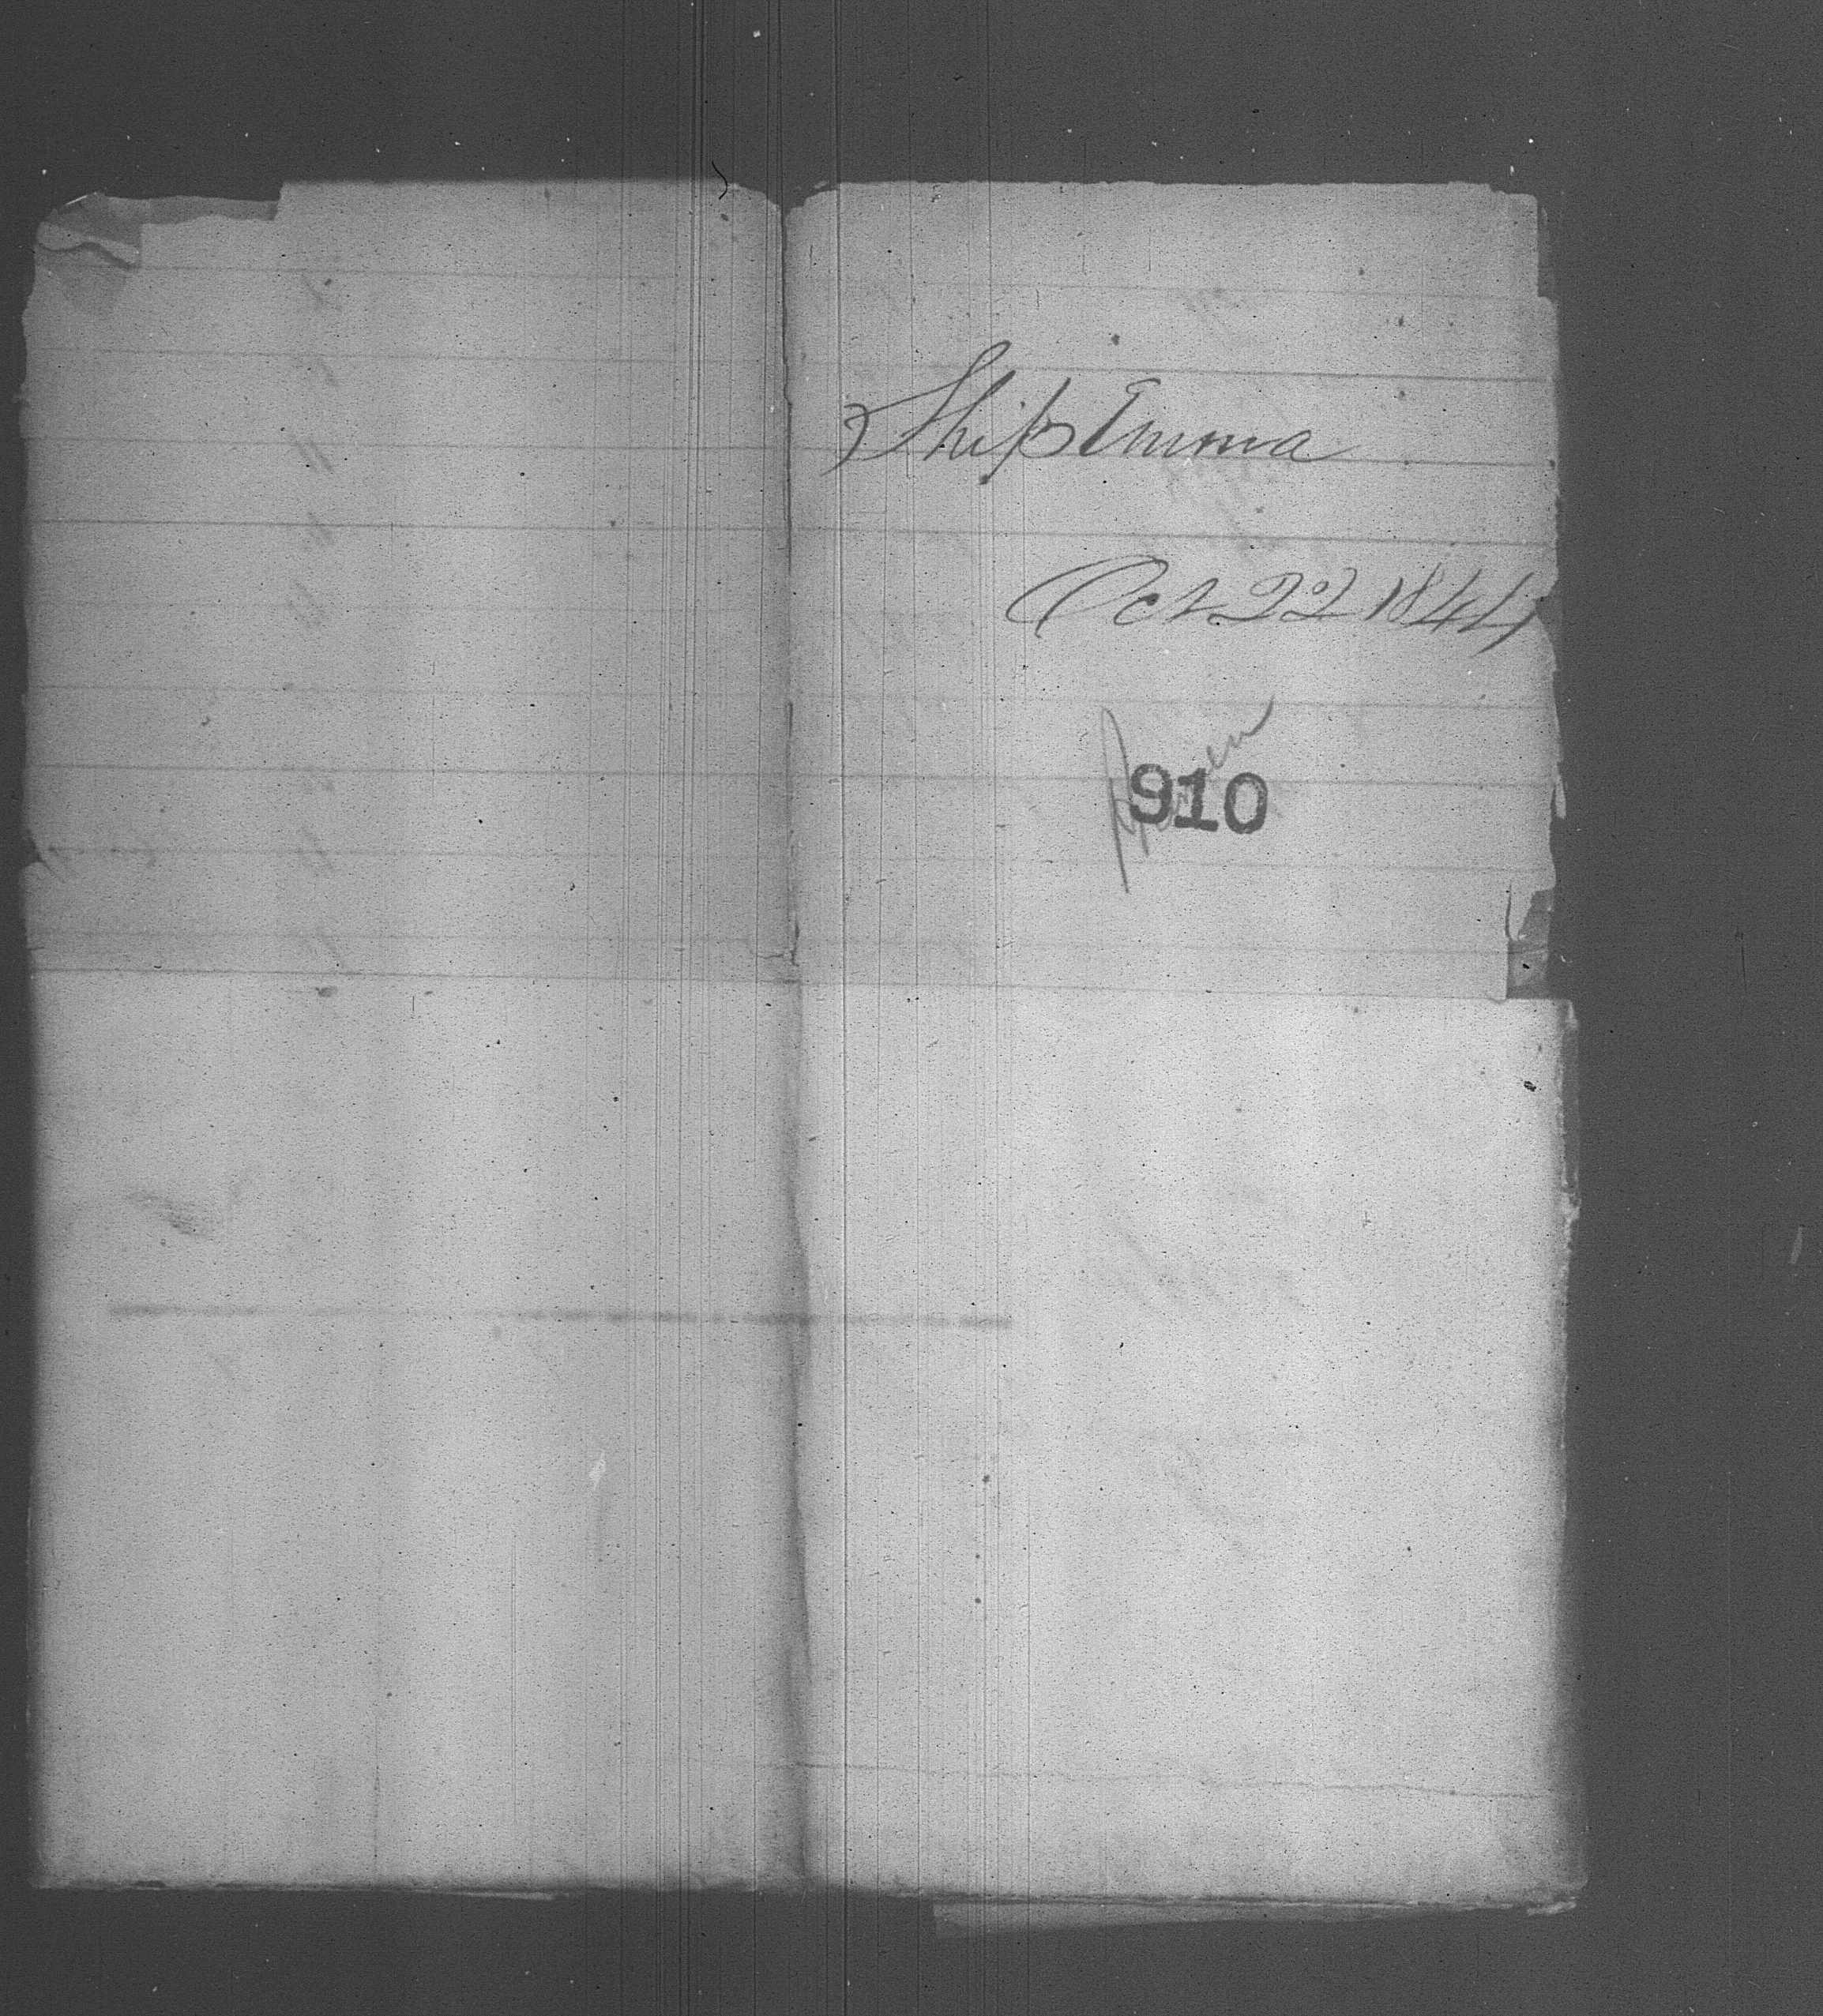 Ship Emma
Oct 22 1844
910